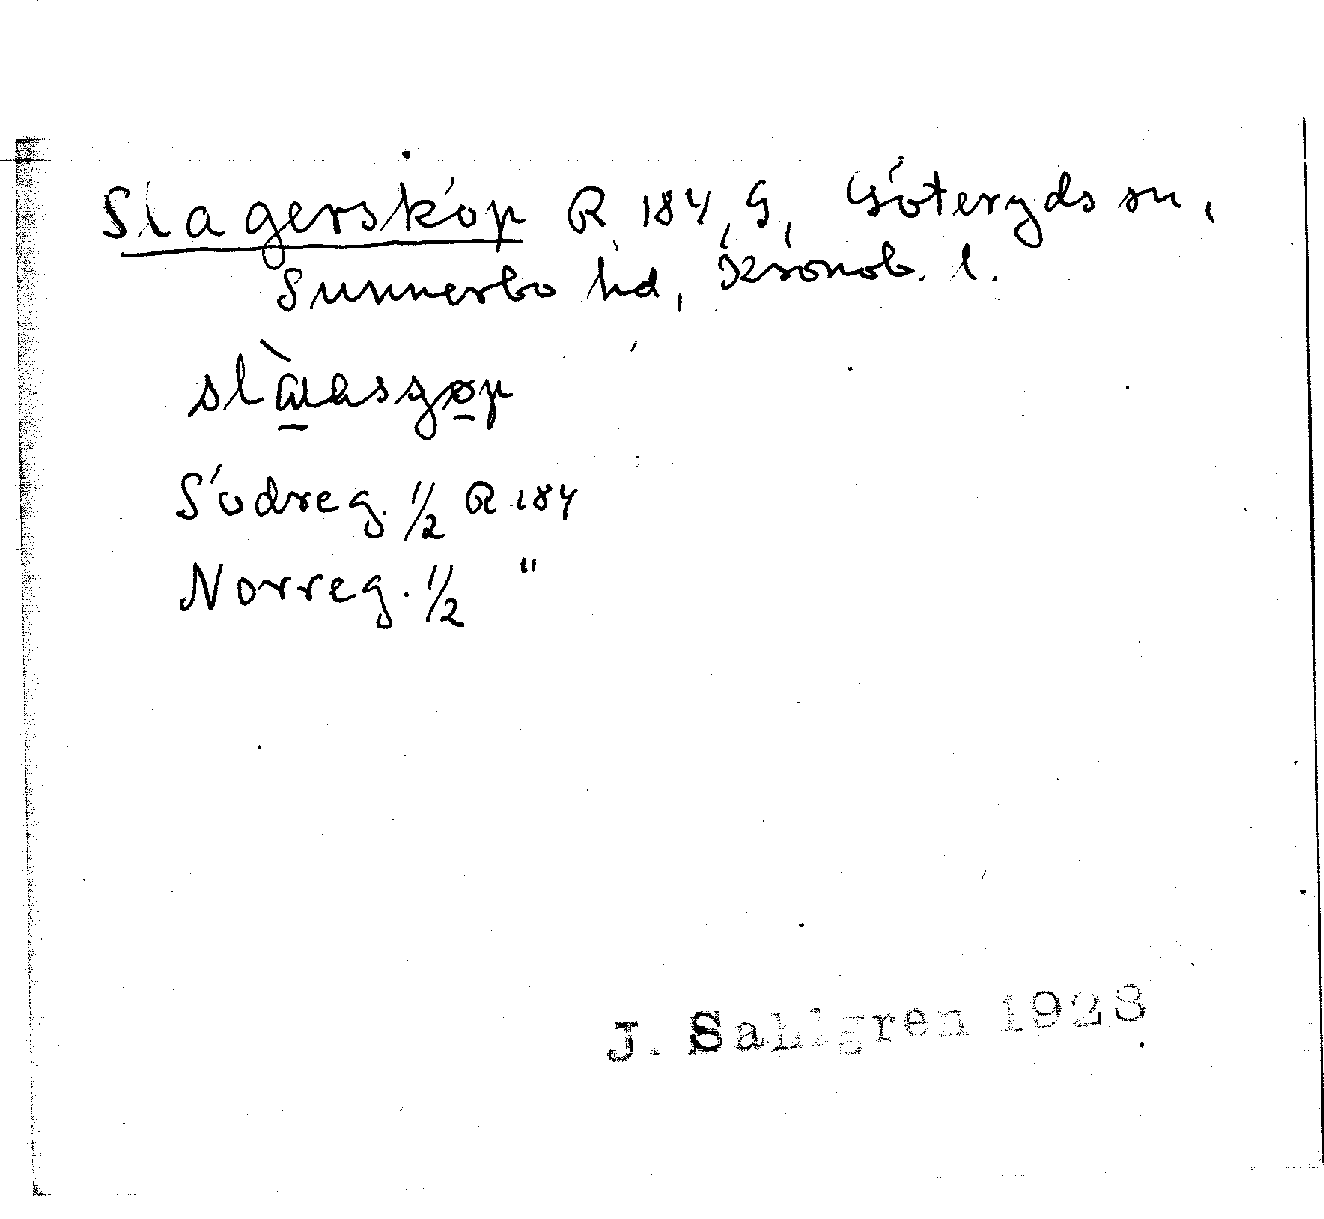 Slagersköp R 184, G, Göteryds sn,
Sunnerbo hd, Kronob. l.
Södreg. 1/2 R 184
Norreg. 1/2 "
J. Sahlgren 1923